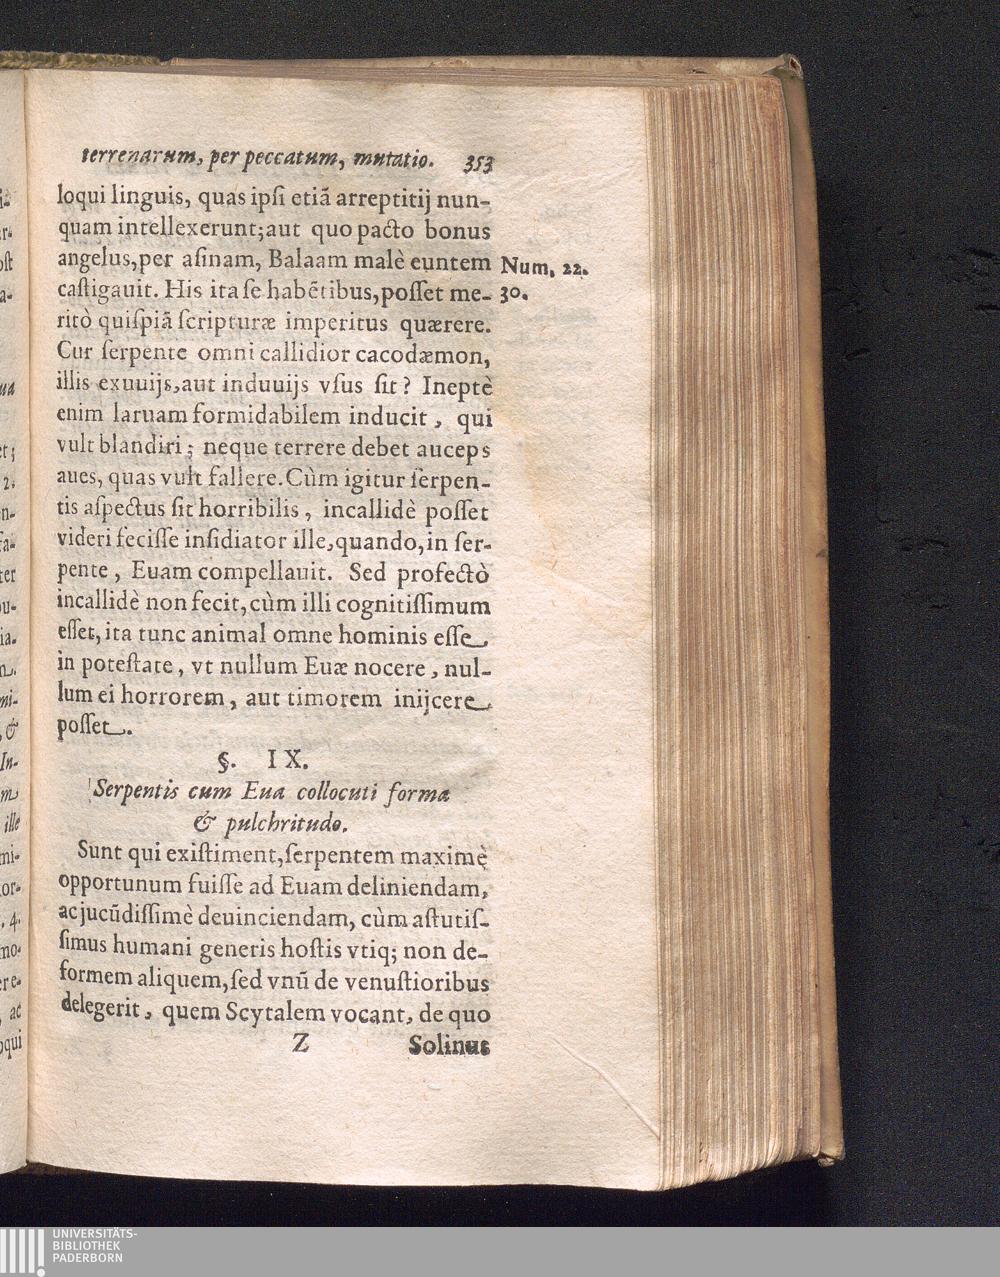 terrenarum, per peccatum, mutatio. 353
loqui linguis, quas ipſi etiã arreptitij nun-
quam intellexerunt; aut quo pacto bonus
angelus, per aſinam, Balaam malè euntem
Num. 22.
caſtigauit. His ita ſe habẽtibus, poſſet me-
30.
ritò quiſpiã ſcripturæ imperitus quærere.
Cur ſerpente omni callidior cacodæmon,
illis exuuijs, aut induuijs vſus ſit? Ineptè
enim laruam formidabilem inducit, qui
vult blandiri; neque terrere debet auceps
aues, quas vult fallere. Cùm igitur ſerpen-
tis aſpectus ſit horribilis, incallidè poſſet
videri feciſſe inſidiator ille, quando, in ſer-
pente, Euam compellauit. Sed profectò
incallidè non fecit, cùm illi cognitiſſimum
eſſet, ita tunc animal omne hominis eſſe
in poteſtate, vt nullum Euæ nocere, nul-
lum ei horrorem, aut timorem inijcere
poſſet.
§. IX.
Serpentis cum Eua collocuti forma
& pulchritudo.
Sunt qui exiſtiment, ſerpentem maximè
opportunum fuiſſe ad Euam deliniendam,
ac jucũdiſſimè deuinciendam, cùm aſtutiſ-
ſimus humani generis hoſtis vtiq; non de-
formem aliquem, ſed vnũ de venuſtioribus
delegerit, quem Scytalem vocant, de quo
Z Solinus
UNIVERSITÄTS-
BIBLIOTHEK
PADERBORN